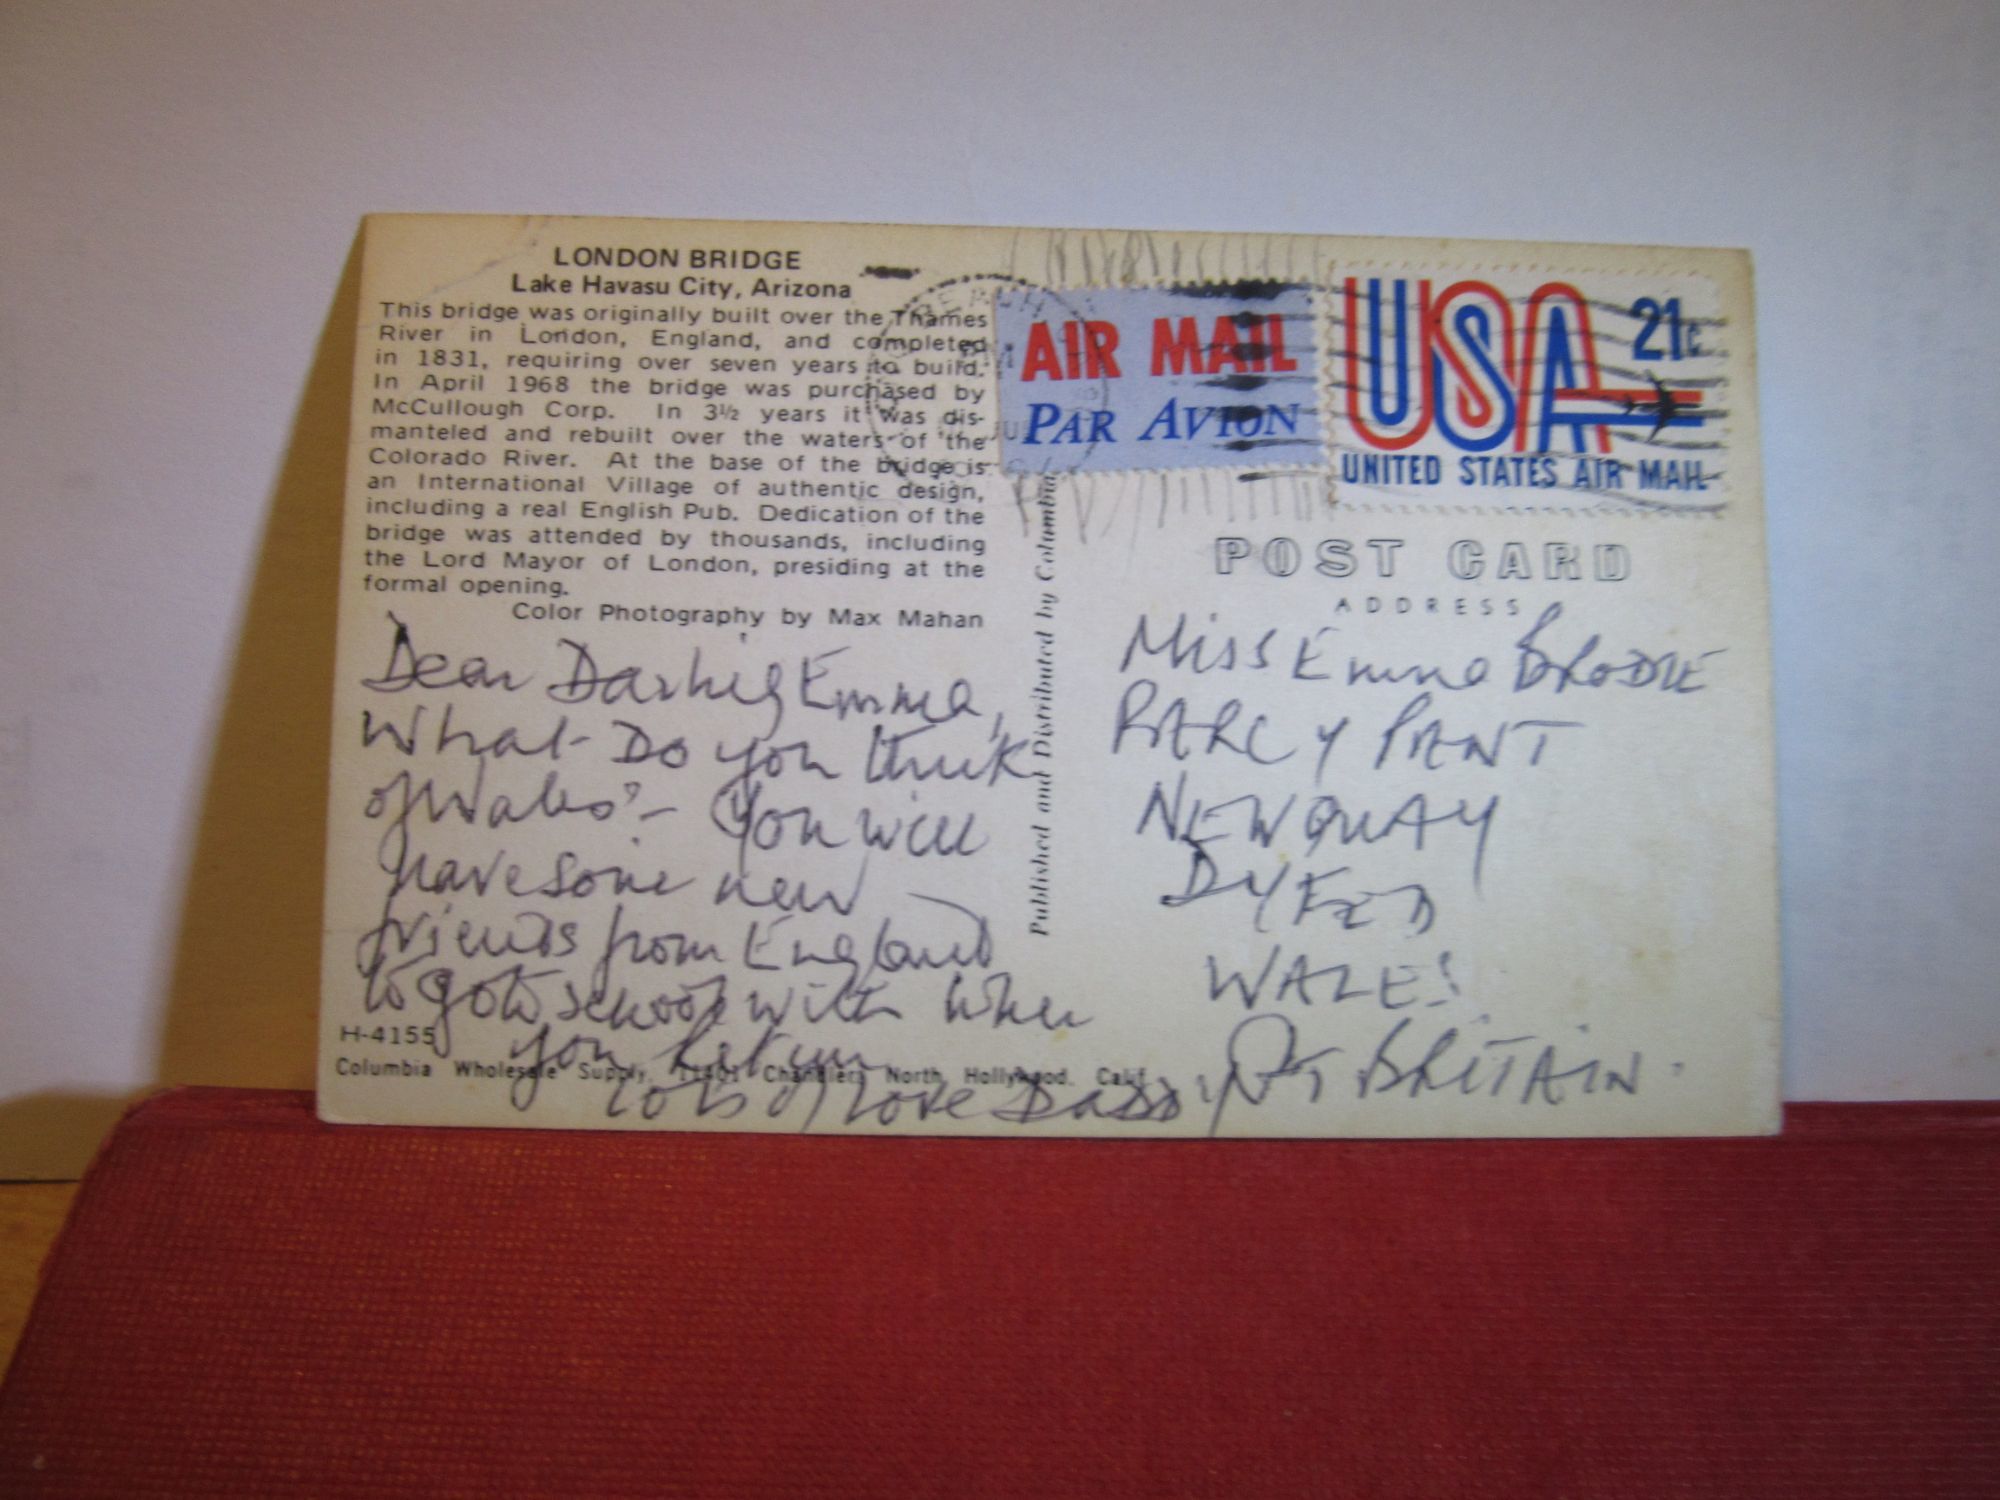 LONDON BRIDGE
Lake Havasu City, Arizona
This bridge was originally built over the Thames
River in London, England, and completed
in 1831, requiring over seven years to build.
In April 1968 the bridge was purchased by
McCullough Corp. In 3½ years it was dis-
manteled and rebuilt over the waters of the
Colorado River. At the base of the bridge is
an International Village of authentic design,
including a real English Pub. Dedication of the
bridge was attended by thousands, including
the Lord Mayor of London, presiding at the
formal opening.
Color Photography by Max Mahan
Dear Darling Emma,
What Do you think
of Wales? - You will
have some new
friends from England
to go to school with when
you return
Lots of love Daddy
H-4155
Columbia Wholesale Supply, 11401 Chandler, North Hollywood, Calif.
Published and Distributed by Columbia
AIR MAIL
PAR AVION
USA 21c
UNITED STATES AIR MAIL
POST CARD
ADDRESS
Miss Emma BRODIE
NEWQUAY
DYFED
WALES
GT BRITAIN.